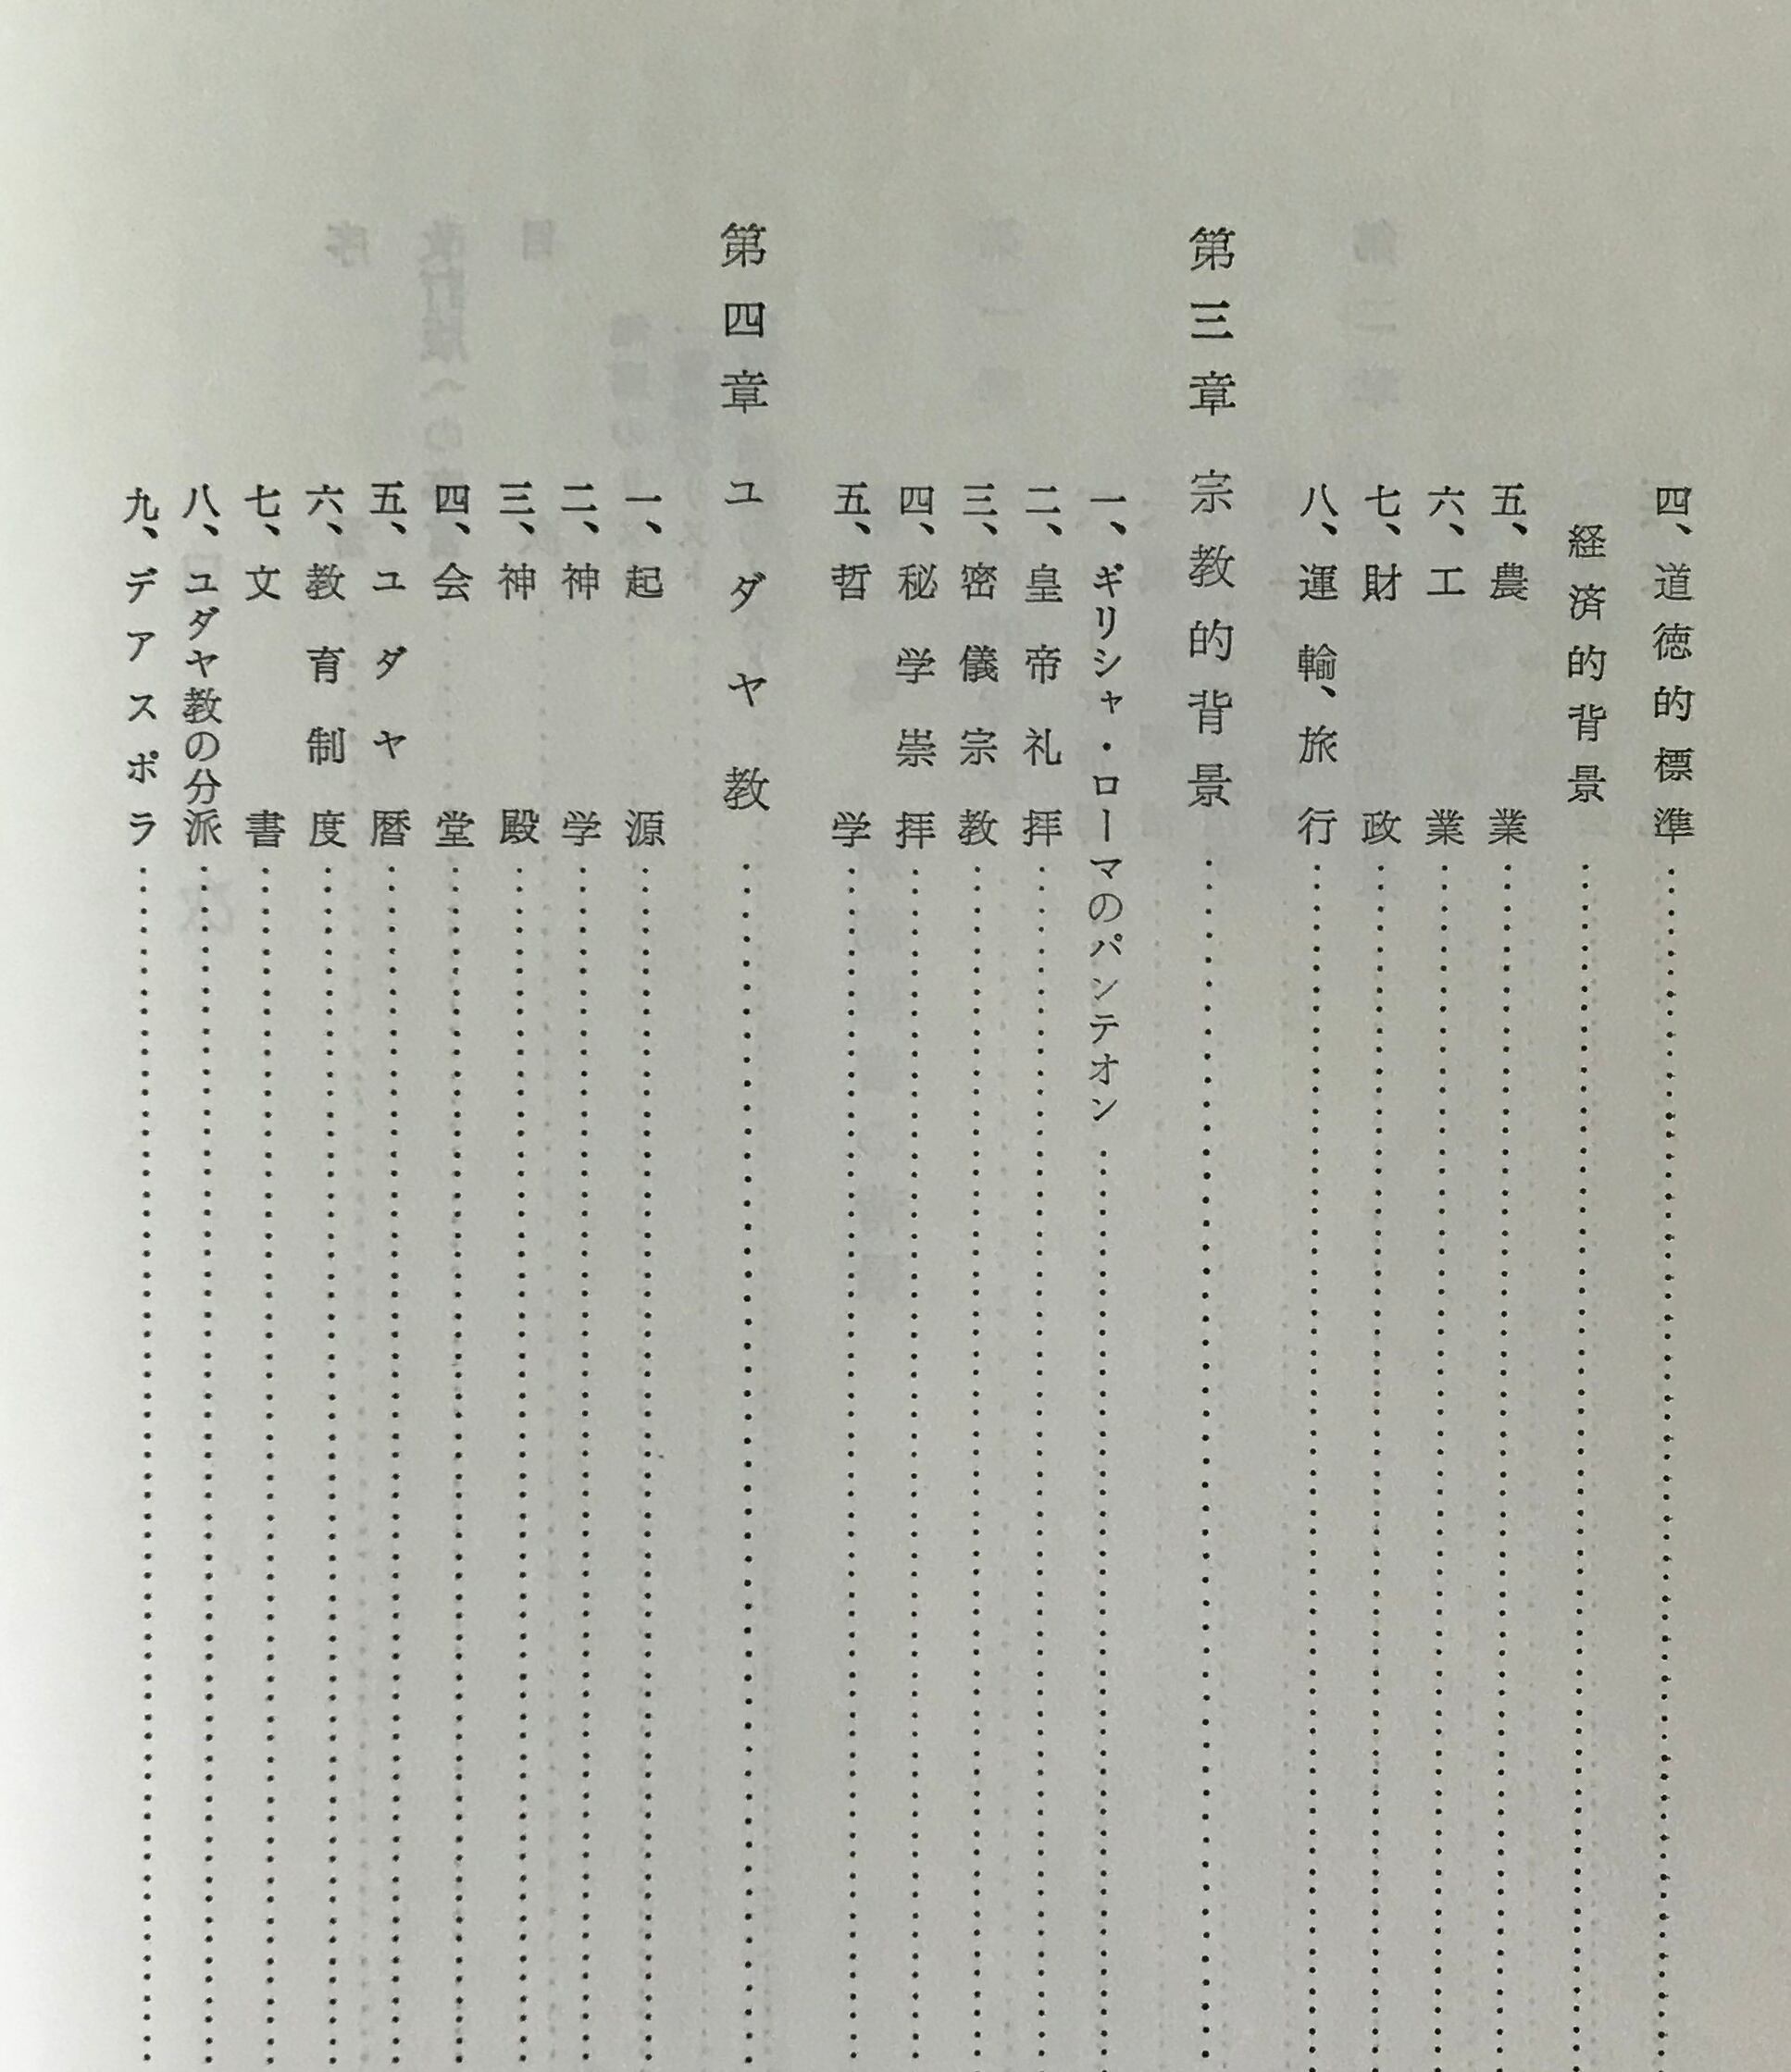 四、道徳的標準
経済的背景
五、農業
六、工業
七、財政
八、運輸、旅行
第三章 宗教的背景
一、ギリシャ・ローマのパンテオン
二、皇帝礼拝
三、密儀宗教
四、秘学崇拝
五、哲学
第四章 ユダヤ教
一、起源
二、神学
三、神殿
四、会堂
五、ユダヤ暦
六、教育制度
七、文書
八、ユダヤ教の分派
九、デアスポラ